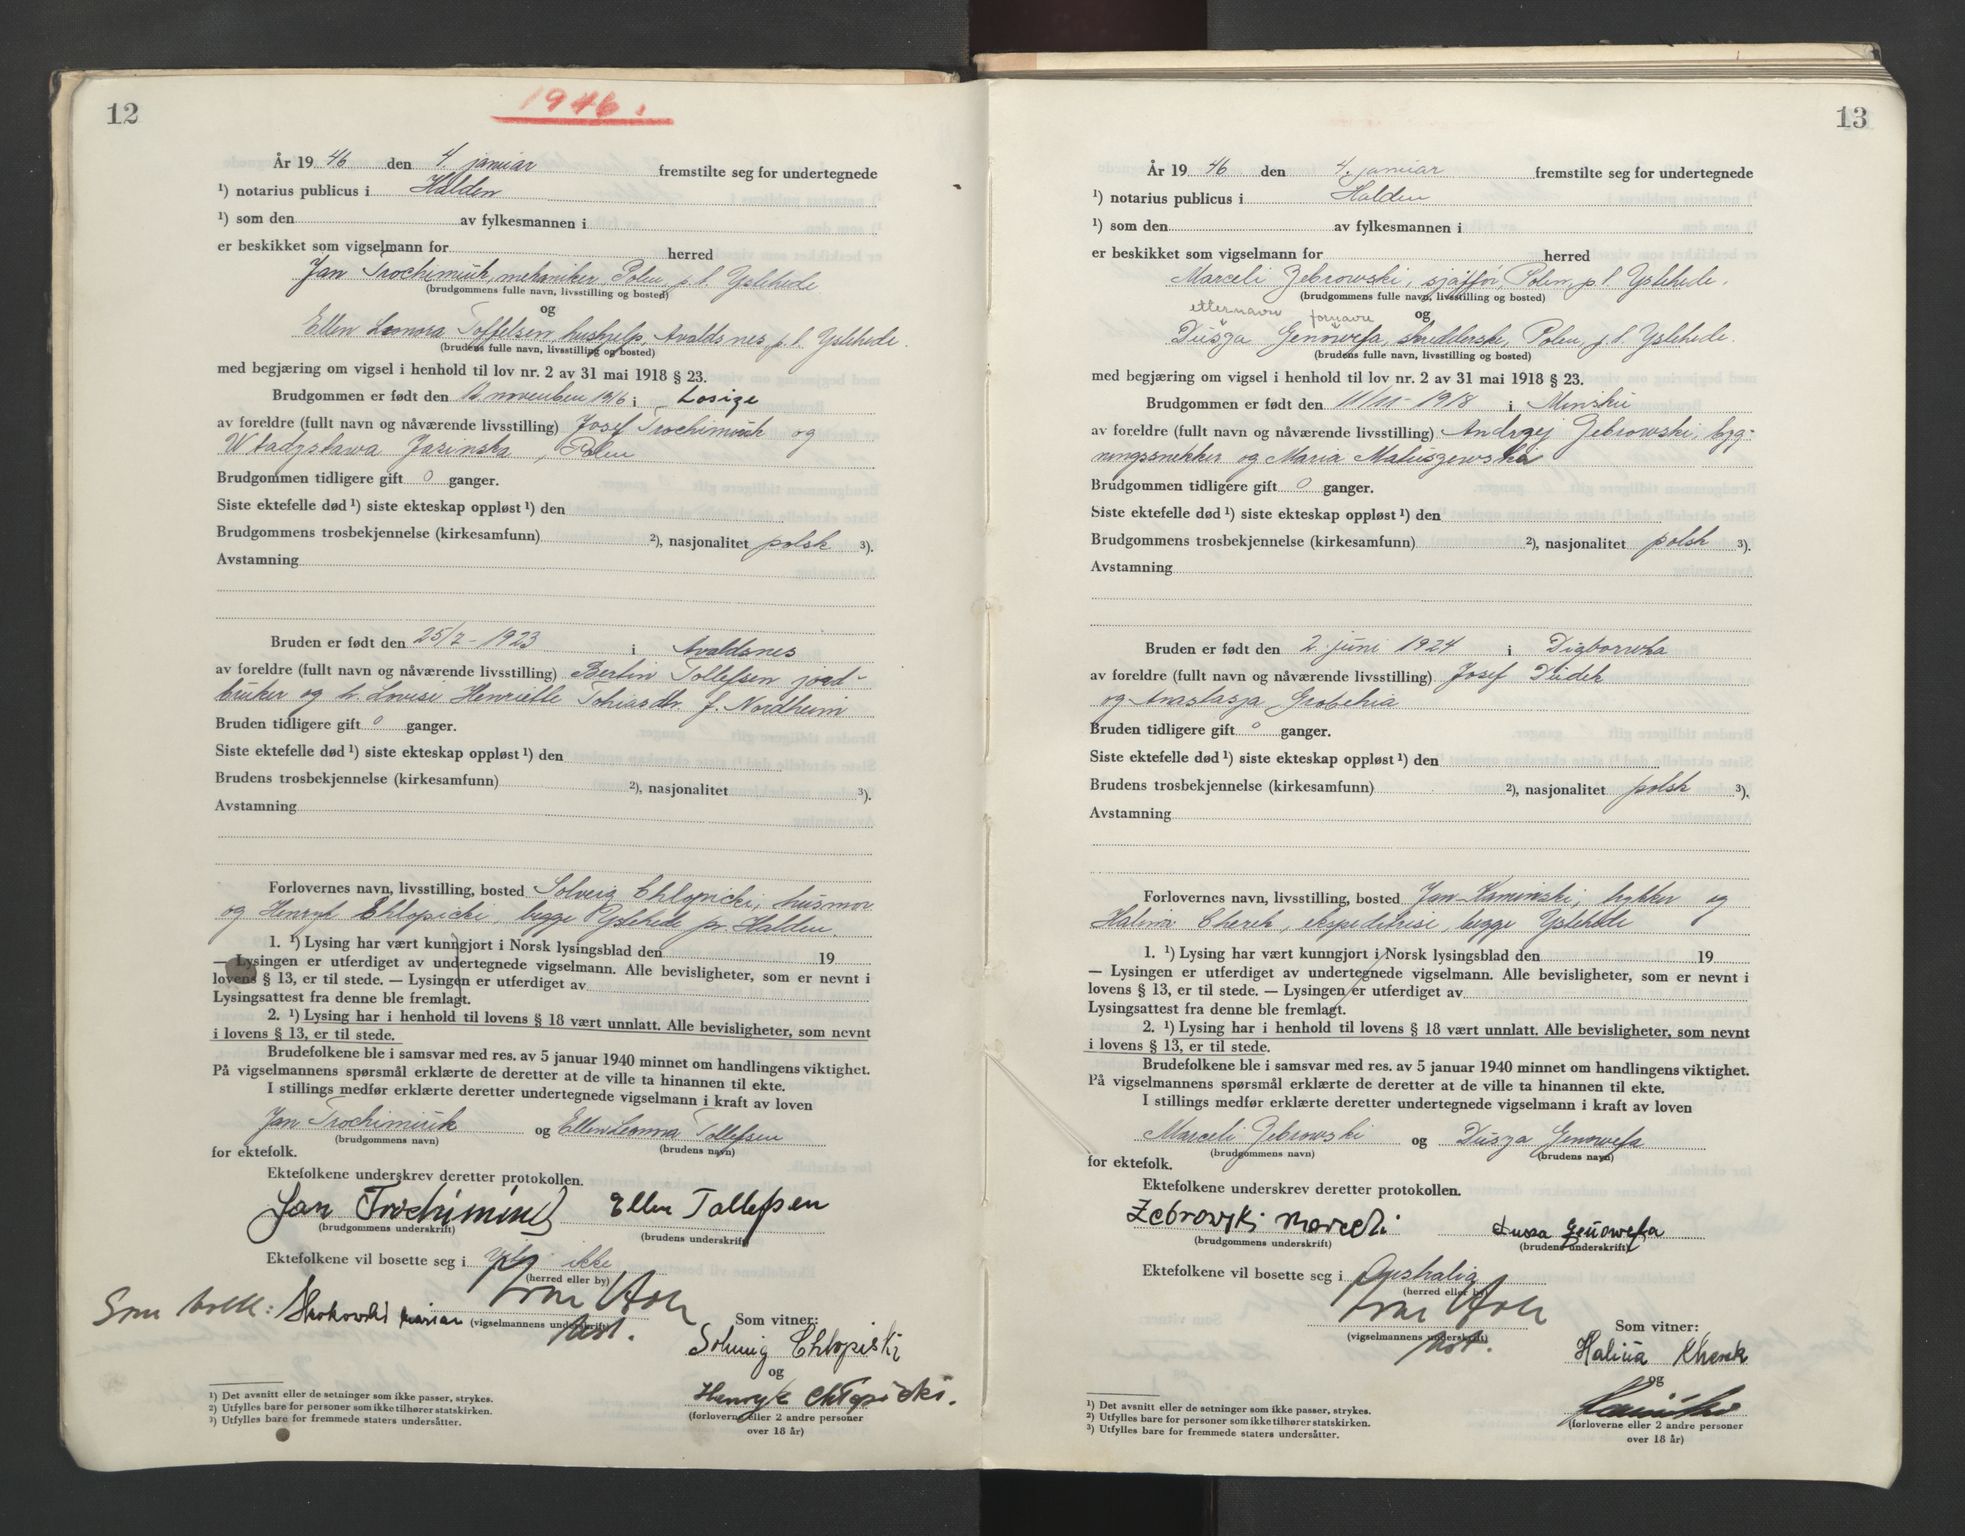 12
1946.
År 1946 den 4. januar fremstilte seg for undertegnede
¹) notarius publicus i Halden
¹) som den av fylkesmannen i
er beskikket som vigselmann for herred
Jan Trochimiuk, mekaniker, Polen, p. t. Ystehede
(brudgommens fulle navn, livsstilling og bosted)
og
Ellen Leonora Toffelsen, hushjelp, Avaldsnes, p. t. Ystehede.
(brudens fulle navn, livsstilling og bosted)
med begjæring om vigsel i henhold til lov nr. 2 av 31 mai 1918 § 23.
Brudgommen er født den november 1916 i Losize
av foreldre (fullt navn og nåværende livsstilling) Josef Trochimiuk og
Wladzslawa Jasinska, Polen
Brudgommen tidligere gift 0 ganger.
Siste ektefelle død ¹) siste ekteskap oppløst ¹) den
Brudgommens trosbekjennelse (kirkesamfunn) ²), nasjonalitet polsk ³).
Avstamning
Bruden er født den 25/7 - 1923 i Avaldsnes
av foreldre (fullt navn og nåværende livsstilling) Bertin Tollefsen jord-
bruker og h. Lovise Henriette Tobiasdtr. f. Nordheim
Bruden tidligere gift 0 ganger.
Siste ektefelle død ¹) siste ekteskap oppløst ¹) den
Brudens trosbekjennelse (kirkesamfunn) ²), nasjonalitet ³).
Avstamning
Forlovernes navn, livsstilling, bosted Solveig Chlopicki, husmor
og Henryk Chlopicki, begge Ystehede pr. Halden.
1. ¹) Lysing har vært kunngjort i Norsk lysingsblad den 19
— Lysingen er utferdiget av undertegnede vigselmann. Alle bevisligheter, som er nevnt i
lovens § 13, er til stede. — Lysingen er utferdiget av
Lysingsattest fra denne ble fremlagt.
2. ¹) Lysing har i henhold til lovens § 18 vært unnlatt. Alle bevisligheter, som nevnt
i lovens § 13, er til stede.
Brudefolkene ble i samsvar med res. av 5 januar 1940 minnet om handlingens viktighet.
På vigselmannens spørsmål erklærte de deretter at de ville ta hinannen til ekte.
I stillings medfør erklærte deretter undertegnede vigselmann i kraft av loven
Jan Trochimiuk og Ellen Leonora Tollefsen
(brudgommens navn) (brudens navn)
for ektefolk.
Ektefolkene underskrev deretter protokollen.
Jan Trochimiuk Ellen Tollefsen
(brudgommens underskrift) (brudens underskrift)
Ektefolkene vil bosette seg i ikke
(herred eller by)
Som tolk: Skokowski Marian (vigselmannens underskrift)
not.
Som vitner:
Solveig Chlopicki
og
Henryk Chlopicki.
(forloverne eller 2 andre personer
over 18 år)
¹) Det avsnitt eller de setninger som ikke passer, strykes.
²) Utfylles bare for personer som ikke tilhører statskirken.
³) Utfylles bare for fremmede staters undersåtter.
13
År 1946 den 4. januar fremstilte seg for undertegnede
¹) notarius publicus i Halden
¹) som den av fylkesmannen i
er beskikket som vigselmann for herred
Marceli Zebrowski, sjåfør, Polen, p. t. Ystehede.
(brudgommens fulle navn, livsstilling og bosted)
etternavn fornavn og
Dusza Genowefa, skredderske, Polen, p. t. Ystehede.
(brudens fulle navn, livsstilling og bosted)
med begjæring om vigsel i henhold til lov nr. 2 av 31 mai 1918 § 23.
Brudgommen er født den 11/11 - 1918 i Minsku
av foreldre (fullt navn og nåværende livsstilling) Andrzej Zebrowski, byg-
ningssnekker og Maria Matuszewska
Brudgommen tidligere gift 0 ganger.
Siste ektefelle død ¹) siste ekteskap oppløst ¹) den
Brudgommens trosbekjennelse (kirkesamfunn) ²), nasjonalitet polsk ³).
Avstamning
Bruden er født den 2. juni 1924 i
av foreldre (fullt navn og nåværende livsstilling) Josef Dudek
og Anastasja Grobehia
Bruden tidligere gift 0 ganger.
Siste ektefelle død ¹) siste ekteskap oppløst ¹) den
Brudens trosbekjennelse (kirkesamfunn) ²), nasjonalitet polsk ³).
Avstamning
Forlovernes navn, livsstilling, bosted Jan Kaminski, og
Halina Cherek, ekspeditrise, begge Ystehede
1. ¹) Lysing har vært kunngjort i Norsk lysingsblad den 19
— Lysingen er utferdiget av undertegnede vigselmann. Alle bevisligheter, som er nevnt i
lovens § 13, er til stede. — Lysingen er utferdiget av
Lysingsattest fra denne ble fremlagt.
2. ¹) Lysing har i henhold til lovens § 18 vært unnlatt. Alle bevisligheter, som nevnt
i lovens § 13, er til stede.
Brudefolkene ble i samsvar med res. av 5 januar 1940 minnet om handlingens viktighet.
På vigselmannens spørsmål erklærte de deretter at de ville ta hinannen til ekte.
I stillings medfør erklærte deretter undertegnede vigselmann i kraft av loven
Marceli Zebrowski og Dusza Genowefa
(brudgommens navn) (brudens navn)
for ektefolk.
Ektefolkene underskrev deretter protokollen.
Zebrowski Marceli Dusza Genowefa
(brudgommens underskrift) (brudens underskrift)
Ektefolkene vil bosette seg i Australia
(herred eller by)
(vigselmannens underskrift)
not.
Som vitner:
Halina Cherek
og
Kaminski
(forloverne eller 2 andre personer
over 18 år)
¹) Det avsnitt eller de setninger som ikke passer, strykes.
²) Utfylles bare for personer som ikke tilhører statskirken.
³) Utfylles bare for fremmede staters undersåtter.